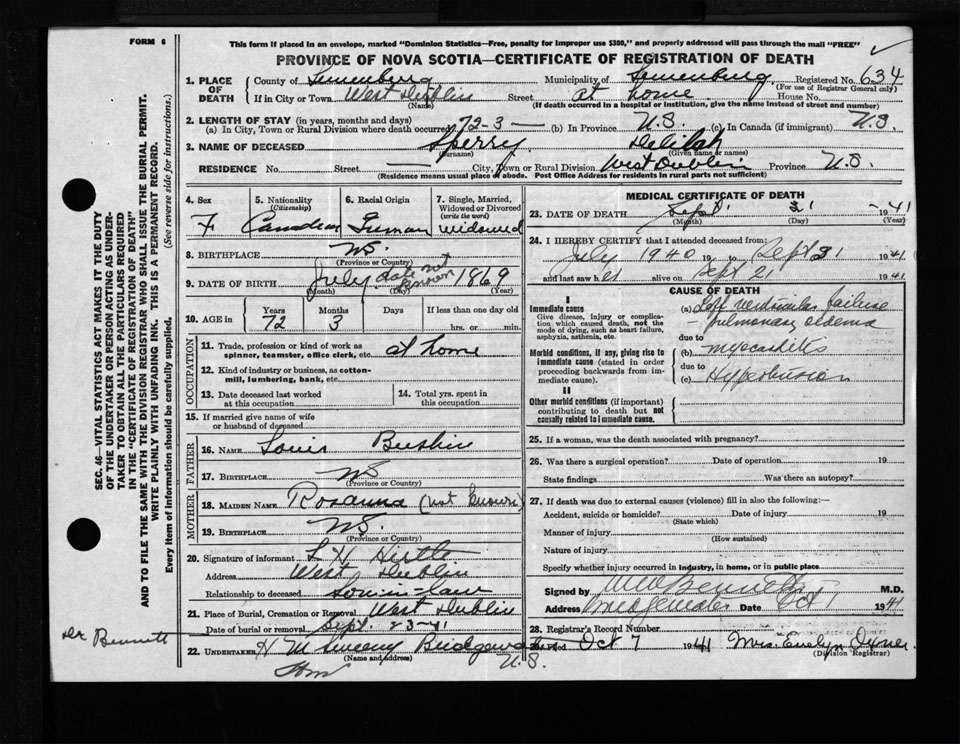 FORM 6
This form if placed in an envelope, marked "Dominion Statistics—Free, penalty for improper use $300," and properly addressed will pass through the mail "FREE"
PROVINCE OF NOVA SCOTIA—CERTIFICATE OF REGISTRATION OF DEATH
1. PLACE OF DEATH County of Lunenburg Municipality of Lunenburg Registered No. 634
(For use of Registrar General only)
If in City or Town West Dublin Street at home House No.
(Name) (If death occurred in a hospital or institution, give the name instead of street and number)
2. LENGTH OF STAY (in years, months and days)
(a) In City, Town or Rural Division where death occurred 72-3 — (b) In Province N.S. (c) In Canada (if immigrant) N.S.
3. NAME OF DECEASED Sperry Delilah
(Surname) (Given name or names)
RESIDENCE No. Street — City, Town or Rural Division West Dublin Province N.S.
(Residence means usual place of abode. Post Office Address for residents in rural parts not sufficient)
4. Sex F
5. Nationality (Citizenship) Canadian
6. Racial Origin German
7. Single, Married, Widowed or Divorced (write the word) widowed
8. BIRTHPLACE N.S.
(Province or Country)
9. DATE OF BIRTH July date not known 1869
(Month) (Day) (Year)
10. AGE in Years 72 Months 3 Days If less than one day old hrs. or min.
OCCUPATION
11. Trade, profession or kind of work as spinner, teamster, office clerk, etc. at home
12. Kind of industry or business, as cotton-mill, lumbering, bank, etc.
13. Date deceased last worked at this occupation
14. Total yrs. spent in this occupation
15. If married give name of wife or husband of deceased
FATHER
16. NAME Louis Bushin
17. BIRTHPLACE N.S.
(Province or Country)
MOTHER
18. MAIDEN NAME Rosanna (not known)
19. BIRTHPLACE N.S.
(Province or Country)
20. Signature of informant L H Hirtle
Address West Dublin
Relationship to deceased Son-in-law
21. Place of Burial, Cremation or Removal West Dublin
Date of burial or removal Sept. 23-41
22. UNDERTAKER Bridgewater
(Name and address) N.S.
MEDICAL CERTIFICATE OF DEATH
23. DATE OF DEATH Sept 21 1941
(Month) (Day) (Year)
24. I HEREBY CERTIFY that I attended deceased from:
July 1940 19 to Sept 21 1941
and last saw her alive on Sept 21 1941
CAUSE OF DEATH
I
Immediate cause
Give disease, injury or complication which caused death, not the mode of dying, such as heart failure, asphyxia, asthenia, etc.
(a) Left ventricular failure
— pulmonary oedema
due to
Morbid conditions, if any, giving rise to immediate cause (stated in order proceeding backwards from immediate cause).
(b) myocarditis
due to
(c) Hypertension
II
Other morbid conditions (if important) contributing to death but not causally related to immediate cause.
25. If a woman, was the death associated with pregnancy?
26. Was there a surgical operation? Date of operation 19
State findings Was there an autopsy?
27. If death was due to external causes (violence) fill in also the following:—
Accident, suicide or homicide? Date of injury 19
(State which)
Manner of injury
(How sustained)
Nature of injury
Specify whether injury occurred in industry, in home, or in public place
Signed by Bennett M.D.
Address Bridgewater Date Oct 1941
28. Registrar's Record Number
Filed Oct 7 1941 Mrs. Evelyn Oxner
(Division Registrar)
Dr Bennett
SEC. 46—VITAL STATISTICS ACT MAKES IT THE DUTY OF THE UNDERTAKER OR PERSON ACTING AS UNDERTAKER TO OBTAIN ALL THE PARTICULARS REQUIRED IN THE "CERTIFICATE OF REGISTRATION OF DEATH" AND TO FILE THE SAME WITH THE DIVISION REGISTRAR WHO SHALL ISSUE THE BURIAL PERMIT.
WRITE PLAINLY WITH UNFADING INK. THIS IS A PERMANENT RECORD.
Every item of information should be carefully supplied. (See reverse side for instructions.)